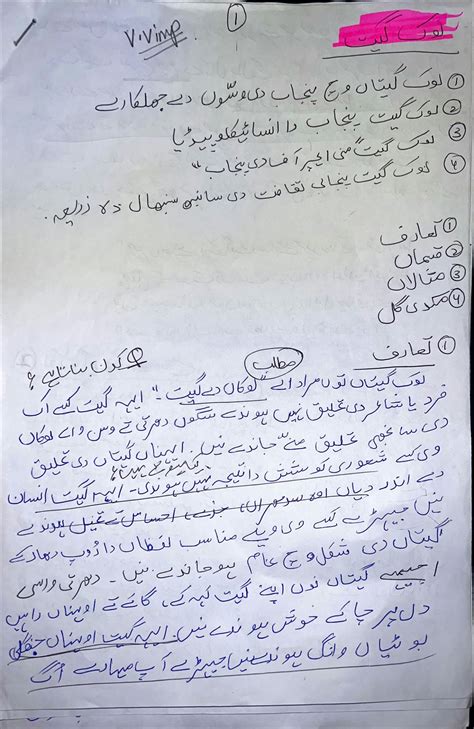 V.Vimp
①
لوک گیت
① لوک گیتاں وچ پنجاب دی وسّوں دے جھلکارے
② لوک گیت پنجاب دا انسائیکلوپیڈیا
③ لوک گیت "منی ایچر آف دی پنجاب"
④ لوک گیت پنجابی ثقافت دی سانبھ سنبھال دا ذریعہ
① تعارف
② قسماں
③ مثالاں
④ مکدی گل
① تعارف مطلب کون بناتا ہے؟
لوک گیتاں توں مراد اے "لوکاں دے گیت۔" ایہہ گیت کسے اک
فرد یا شاعر دی تخلیق نہیں ہوندے سگوں دھرتی تے وسن والے لوکاں
دی سانجھی تخلیق منے جاندے نیں۔ ایہناں گیتاں دی تخلیق
وی کسے شعوری کوشش دا نتیجہ نہیں ہوندی۔ ایہہ گیت انسان
دے اندر احساس تے ہوندے
نیں جیہڑے کسے وی ویلے مناسب لفظاں دا روپ دھار کے
گیتاں دی شکل وچ عام ہو جاندے نیں۔ دھرتی واسی
اجیہے گیتاں نوں اپنے گیت کہہ کے، گا کے تے اوہناں راہیں
دل پرچا کے خوش ہوندے نیں۔ ایہہ گیت اوہناں جنگلی
بوٹیاں وانگ ہوندے نیں جیہڑے آپ مہارے اُگ